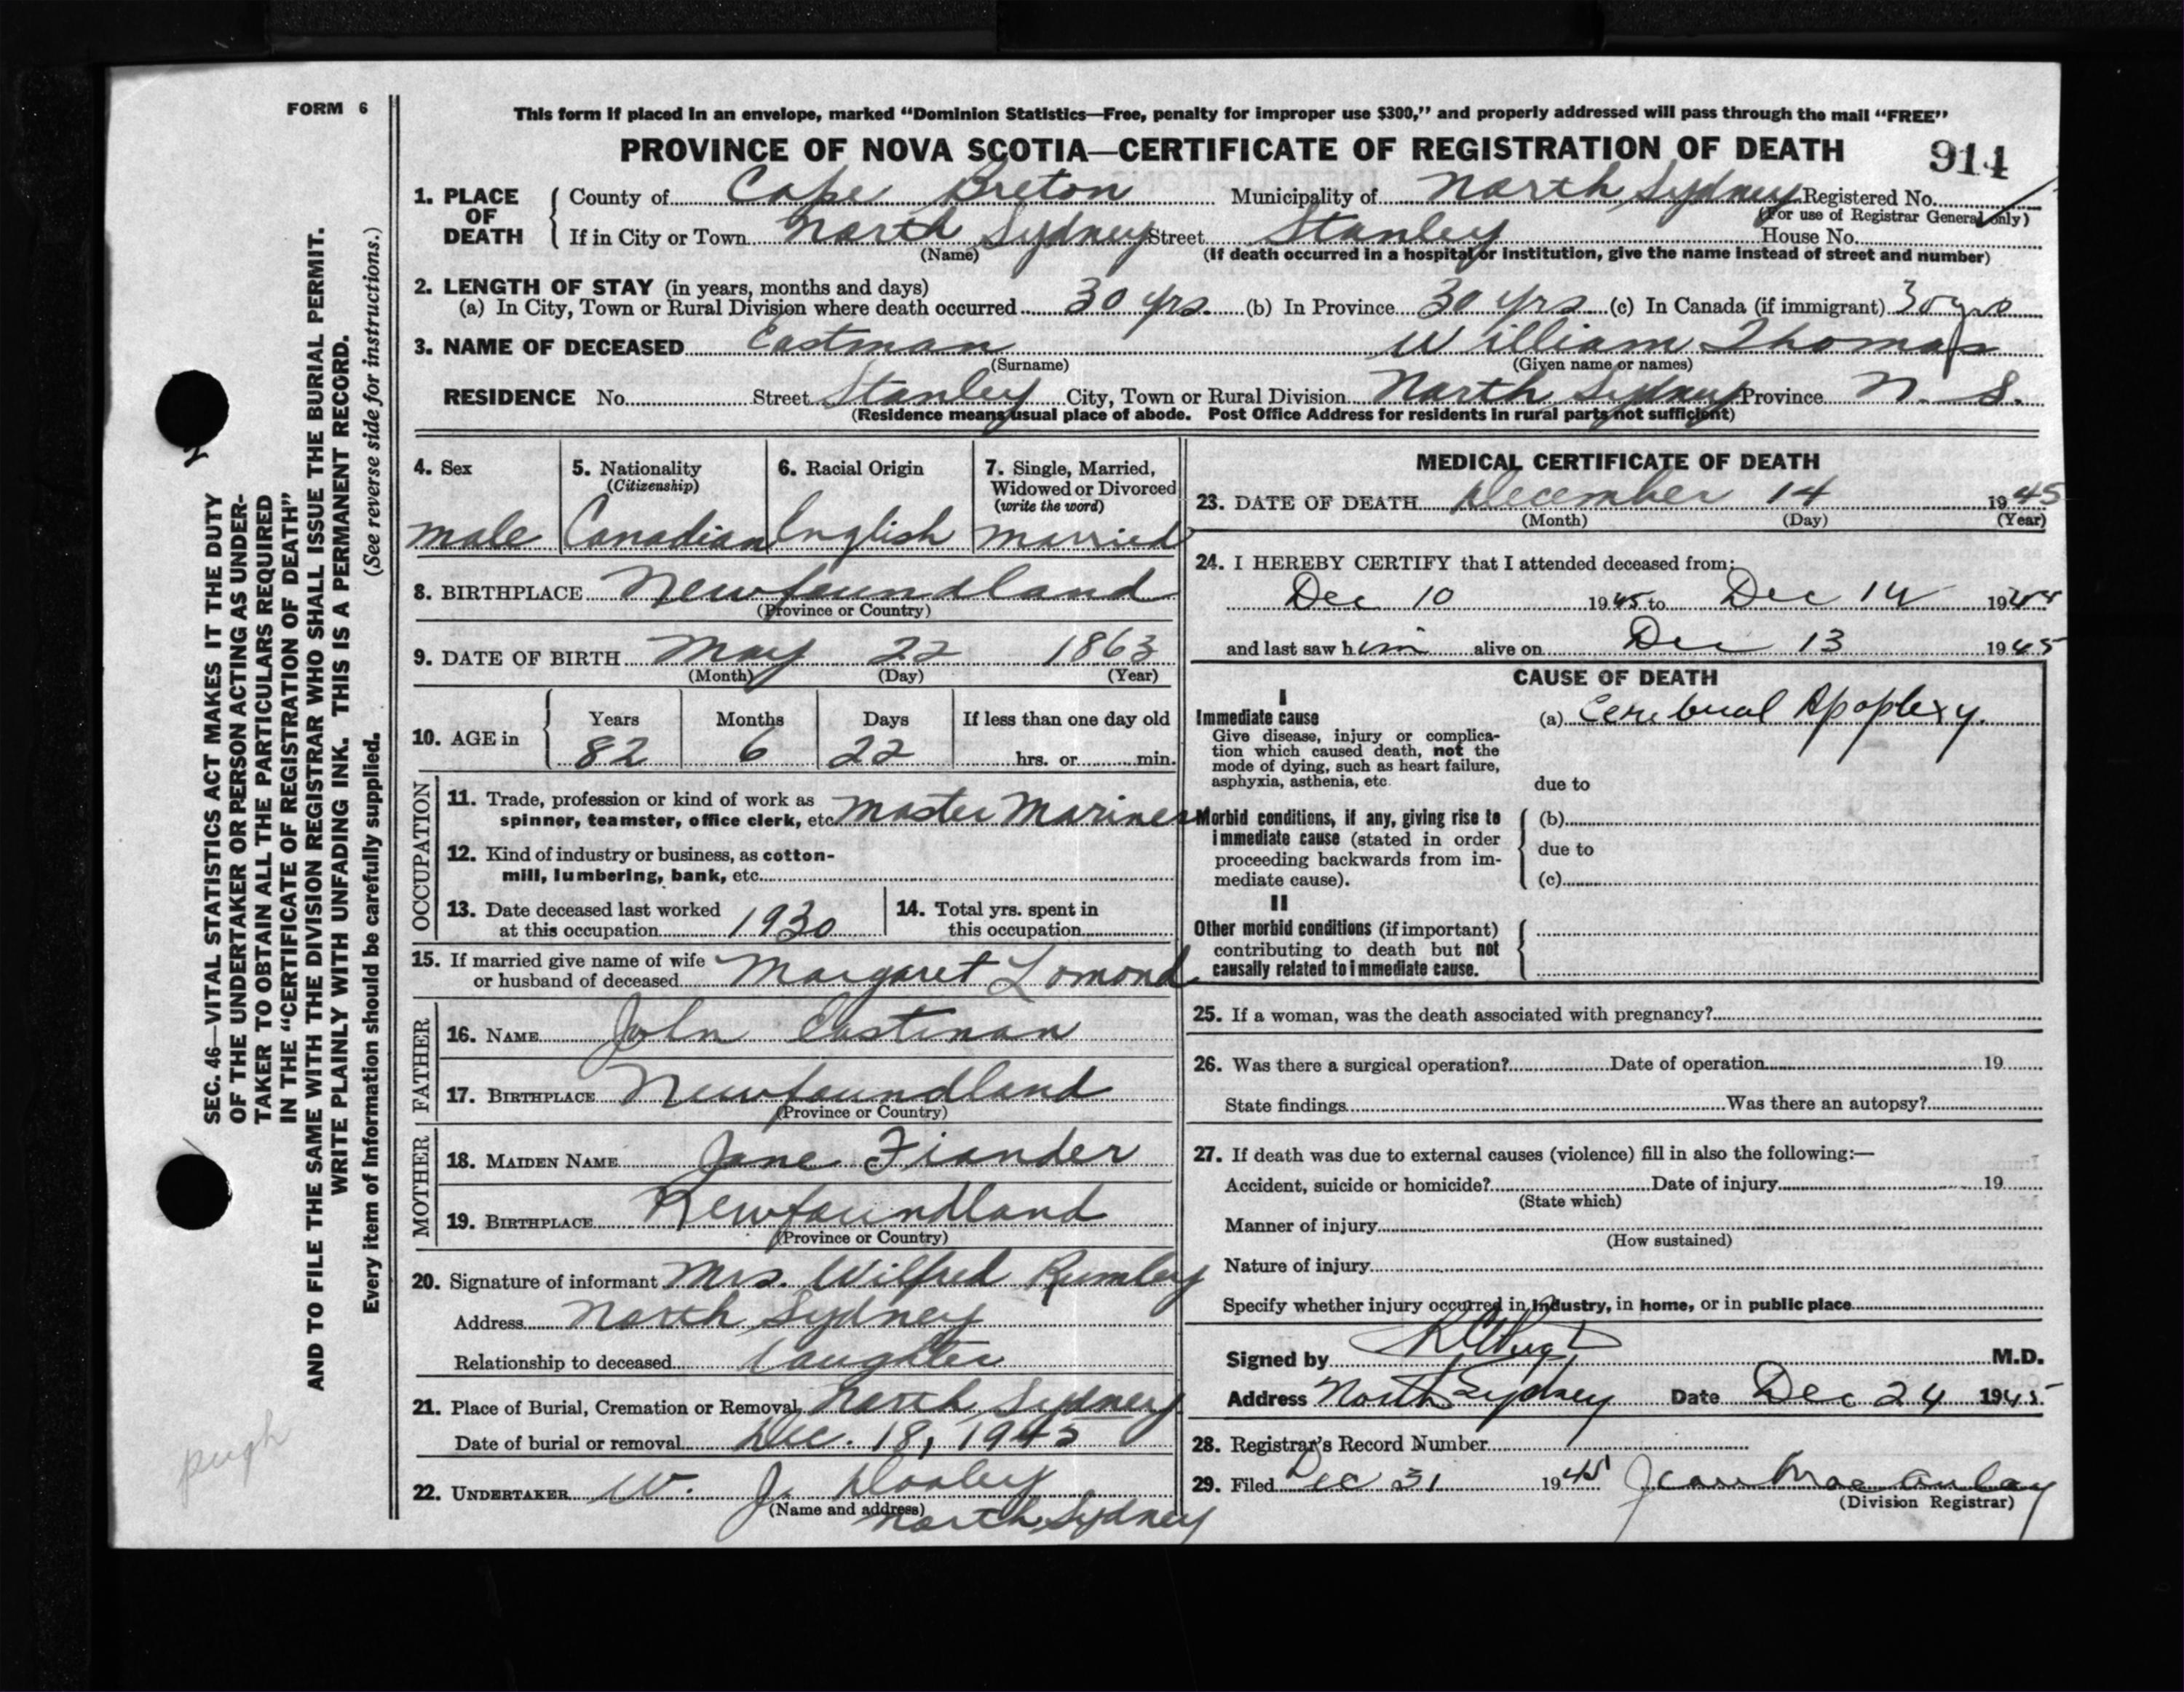 FORM 6
SEC. 46—VITAL STATISTICS ACT MAKES IT THE DUTY
OF THE UNDERTAKER OR PERSON ACTING AS UNDER-
TAKER TO OBTAIN ALL THE PARTICULARS REQUIRED
IN THE "CERTIFICATE OF REGISTRATION OF DEATH"
AND TO FILE THE SAME WITH THE DIVISION REGISTRAR WHO SHALL ISSUE THE BURIAL PERMIT.
WRITE PLAINLY WITH UNFADING INK. THIS IS A PERMANENT RECORD.
Every item of information should be carefully supplied. (See reverse side for instructions.)
pugh
This form if placed in an envelope, marked "Dominion Statistics—Free, penalty for improper use $300," and properly addressed will pass through the mail "FREE"
PROVINCE OF NOVA SCOTIA—CERTIFICATE OF REGISTRATION OF DEATH 914
1. PLACE OF DEATH
County of Cape Breton Municipality of North Sydney Registered No.
(For use of Registrar General only)
If in City or Town North Sydney Street Stanley House No.
(Name) (If death occurred in a hospital or institution, give the name instead of street and number)
2. LENGTH OF STAY (in years, months and days)
(a) In City, Town or Rural Division where death occurred 30 yrs. (b) In Province 30 yrs (c) In Canada (if immigrant) 30 yrs
3. NAME OF DECEASED Eastman William Thomas
(Surname) (Given name or names)
RESIDENCE No. Street Stanley City, Town or Rural Division North Sydney Province N. S.
(Residence means usual place of abode. Post Office Address for residents in rural parts not sufficient)
4. Sex
male
5. Nationality
(Citizenship)
Canadian
6. Racial Origin
English
7. Single, Married,
Widowed or Divorced
(write the word)
married
8. BIRTHPLACE Newfoundland
(Province or Country)
9. DATE OF BIRTH May 22 1863
(Month) (Day) (Year)
10. AGE in
Years Months Days If less than one day old
82 6 22 hrs. or min.
OCCUPATION
11. Trade, profession or kind of work as
spinner, teamster, office clerk, etc. Master Mariner
12. Kind of industry or business, as cotton-
mill, lumbering, bank, etc.
13. Date deceased last worked
at this occupation 1930
14. Total yrs. spent in
this occupation
15. If married give name of wife
or husband of deceased Margaret Lomond
FATHER
16. NAME John Eastman
17. BIRTHPLACE Newfoundland
(Province or Country)
MOTHER
18. MAIDEN NAME Jane Fiander
19. BIRTHPLACE Newfoundland
(Province or Country)
20. Signature of informant Mrs. Wilfred Rumley
Address North Sydney
Relationship to deceased Daughter
21. Place of Burial, Cremation or Removal North Sydney
Date of burial or removal Dec. 18, 1945
22. UNDERTAKER W. J. Dooley
(Name and address)
North Sydney
MEDICAL CERTIFICATE OF DEATH
23. DATE OF DEATH December 14 1945
(Month) (Day) (Year)
24. I HEREBY CERTIFY that I attended deceased from:
Dec 10 1945 to Dec 14 19
and last saw him alive on Dec 13 1945
CAUSE OF DEATH
I
Immediate cause
Give disease, injury or complica-
tion which caused death, not the
mode of dying, such as heart failure,
asphyxia, asthenia, etc.
(a) Cerebual Apoplexy.
due to
Morbid conditions, if any, giving rise to
immediate cause (stated in order
proceeding backwards from im-
mediate cause).
(b)
due to
(c)
II
Other morbid conditions (if important)
contributing to death but not
causally related to immediate cause.
25. If a woman, was the death associated with pregnancy?
26. Was there a surgical operation? Date of operation 19
State findings Was there an autopsy?
27. If death was due to external causes (violence) fill in also the following:—
Accident, suicide or homicide? Date of injury 19
(State which)
Manner of injury
(How sustained)
Nature of injury
Specify whether injury occurred in industry, in home, or in public place
Signed by M.D.
Address North Sydney Date Dec 24 1945
28. Registrar's Record Number
29. Filed Dec 31 1945 Jean MacAulay
(Division Registrar)